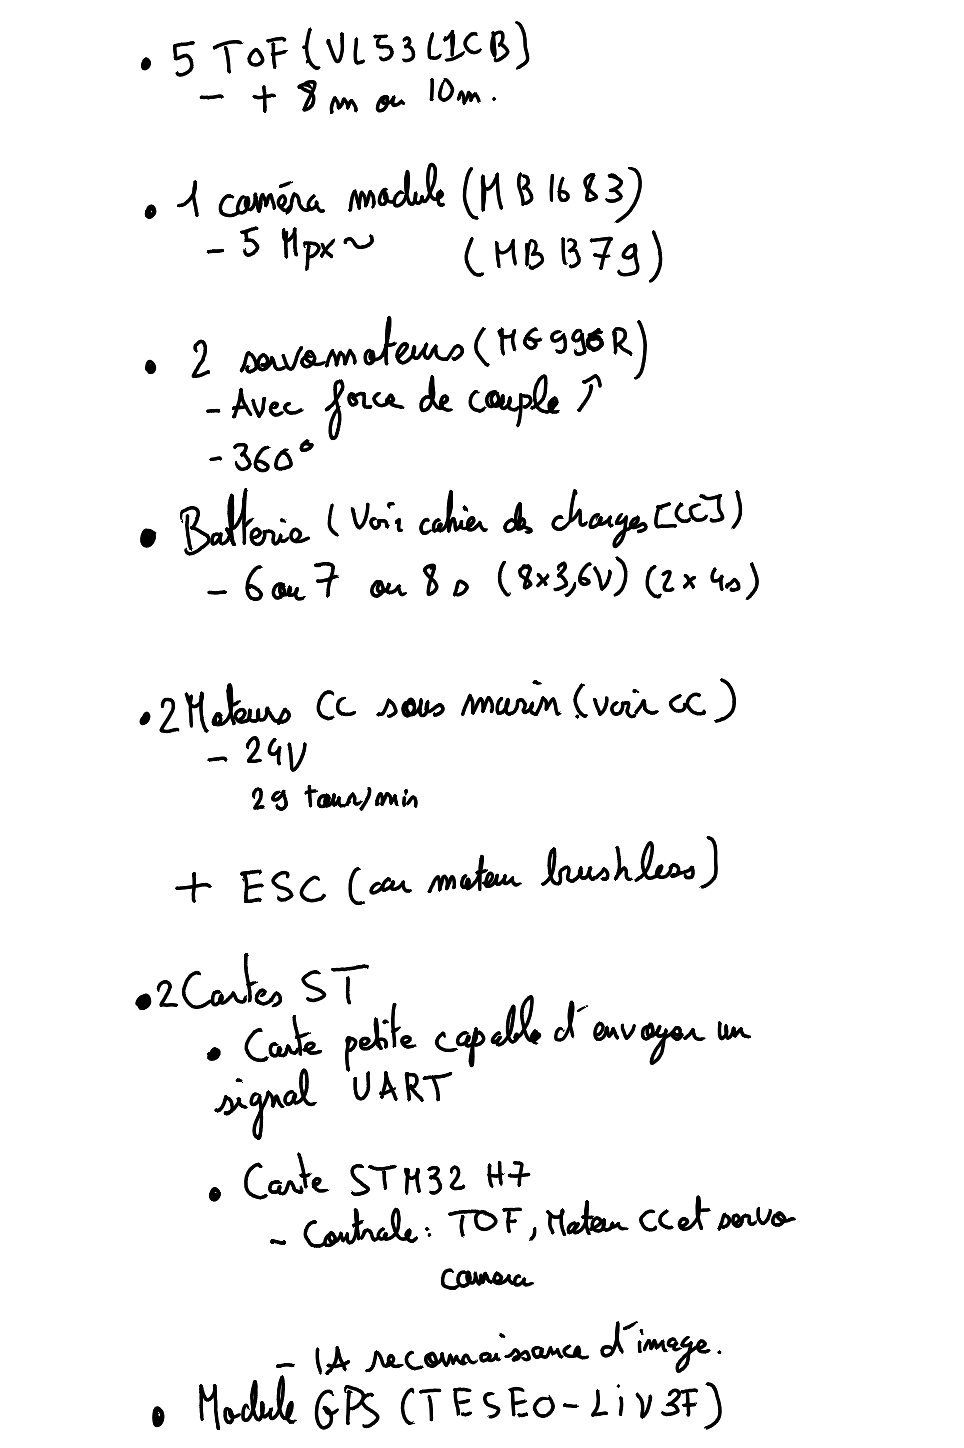 • 5 TOF (VL53L1CB)
- + 8m ou 10m.
• 1 caméra module (MB1683)
- 5 Mpx ~ (MB1379)
• 2 servomoteurs (MG996R)
- Avec force de couple ↗
- 360°
• Batterie (Voir cahier des charges [CC])
- 6 ou 7 ou 8 s (8x3,6V) (2 x 4s)
• 2 Moteurs CC sous marin (voir CC)
- 24V
29 tour/min
+ ESC (car moteur brushless)
• 2 Cartes ST
• Carte petite capable d'envoyer un
signal UART
• Carte STM32 H7
- Controle : TOF, Moteur CC et servo
camera
- IA reconnaissance d'image.
• Module GPS (TESEO-LiV3F)